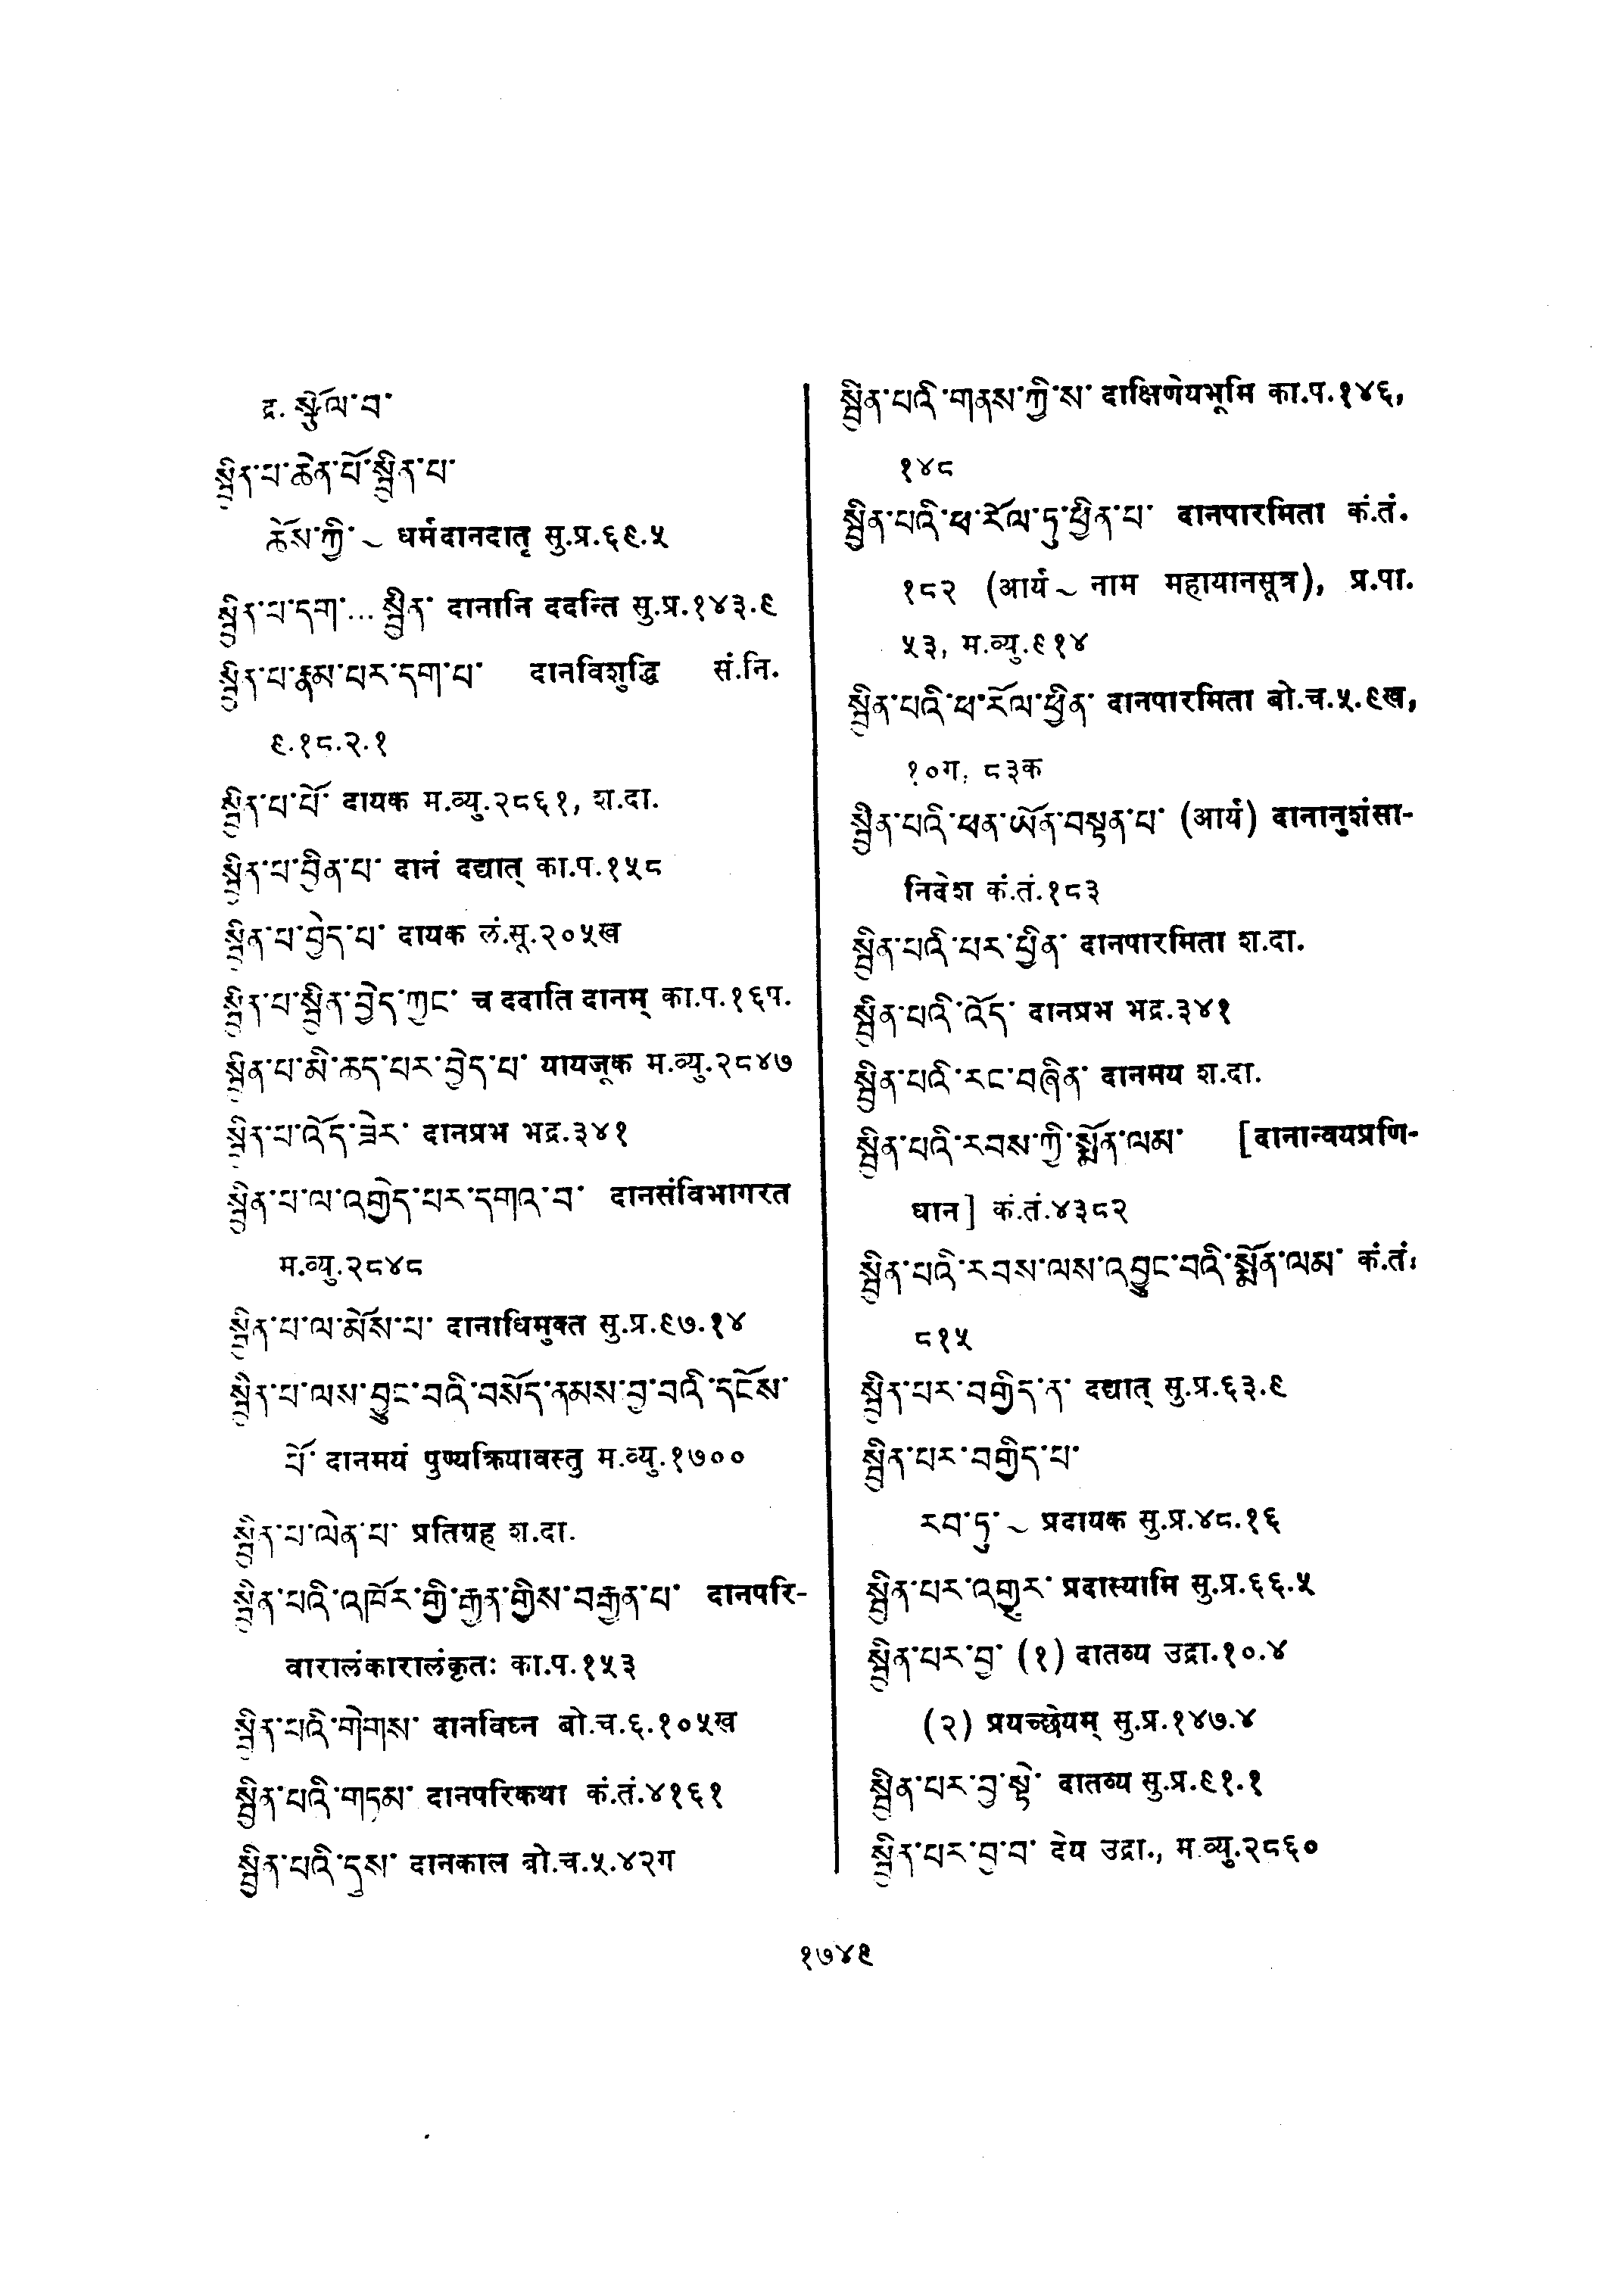 द्र. སྩོལ་བ་
སྦྱིན་པ་ཆེན་པོ་སྦྱིན་པ་
ཆོས་ཀྱི་ ~ धर्मदानदातृ सु.प्र.६९.५
སྦྱིན་པ་དག་... སྦྱིན་ दानानि ददन्ति सु.प्र.१४३.९
སྦྱིན་པ་རྣམ་པར་དག་པ་ दानविशुद्धि सं.नि.
९.१८.२.१
སྦྱིན་པ་པོ་ दायक म.व्यु.२८६१, श.दा.
སྦྱིན་པ་བྱིན་པ་ दानं दद्यात् का.प.१५८
སྦྱིན་པ་བྱེད་པ་ दायक लं.सू.२०५ख
སྦྱིན་པ་སྦྱིན་བྱེད་ཀྱང་ च ददाति दानम् का.प.१६प.
སྦྱིན་པ་མི་ཆད་པར་བྱེད་པ་ यायजूक म.व्यु.२८४७
སྦྱིན་པ་འོད་ཟེར་ दानप्रभ भद्र.३४१
སྦྱིན་པ་ལ་འགྱེད་པར་དགའ་བ་ दानसंविभागरत
म.व्यु.२८४८
སྦྱིན་པ་ལ་མོས་པ་ दानाधिमुक्त सु.प्र.९७.१४
སྦྱིན་པ་ལས་བྱུང་བའི་བསོད་ནམས་བྱ་བའི་དངོས་
པོ་ दानमयं पुण्यक्रियावस्तु म.व्यु.१७००
སྦྱིན་པ་ལེན་པ་ प्रतिग्रह श.दा.
སྦྱིན་པའི་འཁོར་གྱི་རྒྱན་གྱིས་བརྒྱན་པ་ दानपरि-
वारालंकारालंकृतः का.प.१५३
སྦྱིན་པའི་གེགས་ दानविघ्न बो.च.६.१०५ख
སྦྱིན་པའི་གཏམ་ दानपरिकथा कं.तं.४१६१
སྦྱིན་པའི་དུས་ दानकाल बो.च.५.४२ग
སྦྱིན་པའི་གནས་ཀྱི་ས་ दाक्षिणेयभूमि का.प.१४६,
१४८
སྦྱིན་པའི་ཕ་རོལ་ཏུ་ཕྱིན་པ་ दानपारमिता कं.तं.
१८२ (आर्य ~ नाम महायानसूत्र), प्र.पा.
५३, म.व्यु.९१४
སྦྱིན་པའི་ཕ་རོལ་ཕྱིན་ दानपारमिता बो.च.५.९ख,
१०ग, ८३क
སྦྱིན་པའི་ཕན་ཡོན་བསྟན་པ་ (आर्य) दानानुशंसा-
निर्देश कं.तं.१८३
སྦྱིན་པའི་པར་ཕྱིན་ दानपारमिता श.दा.
སྦྱིན་པའི་འོད་ दानप्रभ भद्र.३४१
སྦྱིན་པའི་རང་བཞིན་ दानमय श.दा.
སྦྱིན་པའི་རབས་ཀྱི་སྨོན་ལམ་ [दानान्वयप्रणि-
धान] कं.तं.४३८२
སྦྱིན་པའི་རབས་ལས་འབྱུང་བའི་སྨོན་ལམ་ कं.तं.
८१५
སྦྱིན་པར་བགྱིད་ན་ दद्यात् सु.प्र.६३.९
སྦྱིན་པར་བགྱིད་པ་
རབ་ཏུ་ ~ प्रदायक सु.प्र.४८.१६
སྦྱིན་པར་འགྱུར་ प्रदास्यामि सु.प्र.६६.५
སྦྱིན་པར་བྱ་ (१) दातव्य उद्रा.१०.४
(२) प्रयच्छेयम् सु.प्र.१४७.४
སྦྱིན་པར་བྱ་སྟེ་ दातव्य सु.प्र.९१.१
སྦྱིན་པར་བྱ་བ་ देय उद्रा., म.व्यु.२८६०
१७४९